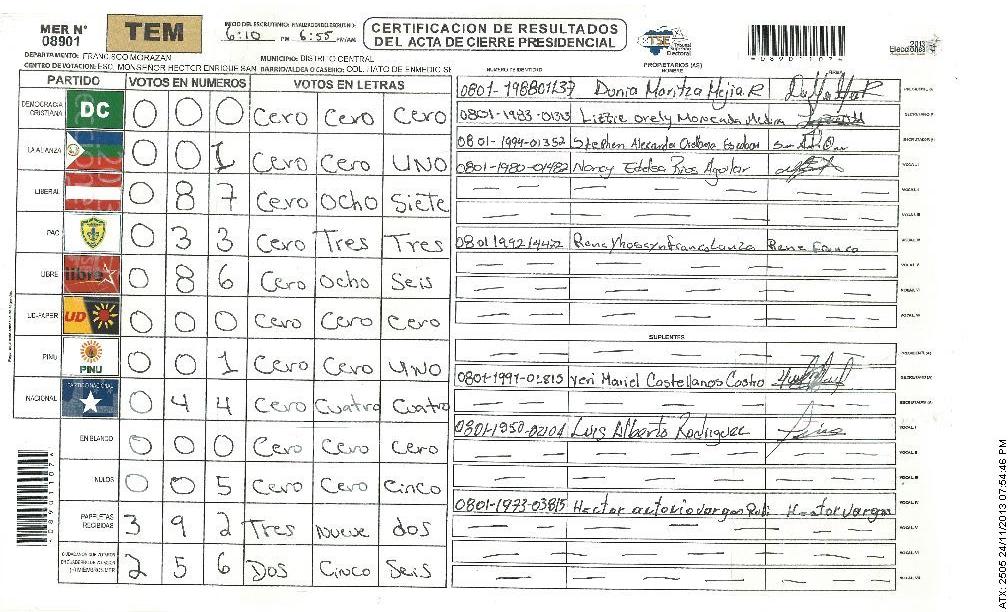 MER N° 08901
TEM
INICIO DEL ESCRUTINIO: FINALIZACION DEL ESCRUTINIO:
6:10 PM 6:55 PM/AM
CERTIFICACION DE RESULTADOS
DEL ACTA DE CIERRE PRESIDENCIAL
TSE Tribunal Supremo Electoral
2013
Elecciones
089011074
DEPARTAMENTO: FRANCISCO MORAZAN MUNICIPIO: DISTRITO CENTRAL
CENTRO DE VOTACION: ESC. MONSEÑOR HECTOR ENRIQUE SAN BARRIO/ALDEA O CASERIO: COL. HATO DE ENMEDIO SE
NUMERO DE IDENTIDAD PROPIETARIOS (AS) NOMBRE FIRMA
PARTIDO VOTOS EN NUMEROS VOTOS EN LETRAS
DEMOCRACIA CRISTIANA DC 0 0 0 Cero Cero Cero
LA ALIANZA 0 0 1 Cero Cero UNO
LIBERAL 0 8 7 Cero Ocho Siete
PAC 0 3 3 Cero Tres Tres
LIBRE libre 0 8 6 Cero Ocho Seis
UD-FAPER UD 0 0 0 Cero Cero Cero
PINU PINU 0 0 1 Cero Cero UNO
NACIONAL PARTIDO NACIONAL 0 4 4 Cero Cuatro Cuatro
EN BLANCO 0 0 0 Cero Cero Cero
NULOS 0 0 5 Cero Cero Cinco
PAPELETAS RECIBIDAS 3 9 2 Tres nueve dos
2 5 6 Dos Cinco Seis
0801-198801137 Dunia Maritza Mejia R
0801-1983-01313 Lizzie Orely Moncada Medina
0801-1994-01352 Stephen Alexander Orellana Escobar
0801-1980-01982 Nancy Edelsa Rios Aguilar
0801199214472 Rene Franco
SUPLENTES
0801-1991-02815 Yeri Mariel Castellanos Castro
0801-1950-02104 Luis Alberto Rodriguez
0801-1973-03815 Hector antonio vargas Hector vargas
089011074
ATX: 2505 24/11/2013 07:54:46 PM